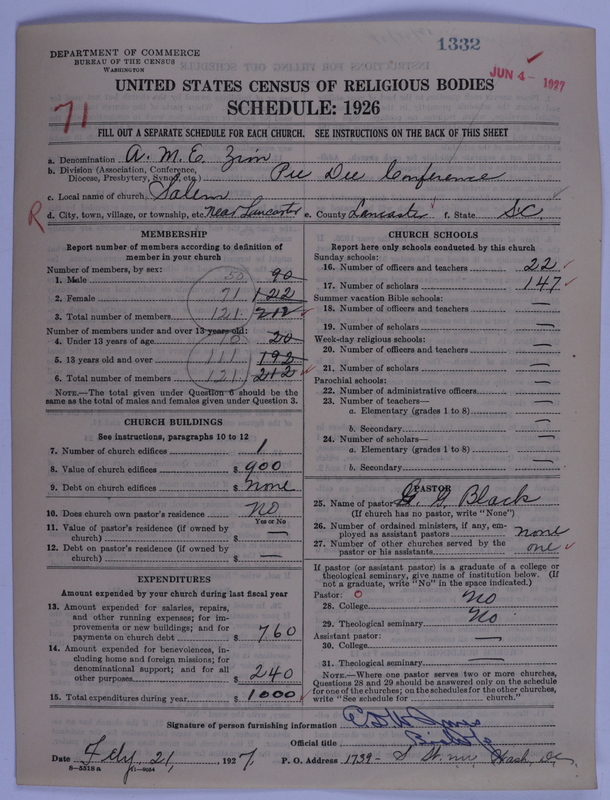 1332
JUN 4 - 1927
DEPARTMENT OF COMMERCE
BUREAU OF THE CENSUS
WASHINGTON
UNITED STATES CENSUS OF RELIGIOUS BODIES
SCHEDULE: 1926
71
FILL OUT A SEPARATE SCHEDULE FOR EACH CHURCH. SEE INSTRUCTIONS ON THE BACK OF THIS SHEET
a. Denomination A. M. E. Zion
b. Division (Association, Conference, Diocese, Presbytery, Synod, etc.) Pee Dee Conference
c. Local name of church Salem
R d. City, town, village, or township, etc. near Lancaster e. County Lancaster f. State SC.
MEMBERSHIP
Report number of members according to definition of
member in your church
Number of members, by sex:
1. Male 50 90
2. Female 71 122
3. Total number of members 121 212
Number of members under and over 13 years old:
4. Under 13 years of age 10 20
5. 13 years old and over 111 192
6. Total number of members 121 212
NOTE.—The total given under Question 6 should be
same as the total of males and females given under Question 3.
CHURCH BUILDINGS
See instructions, paragraphs 10 to 12
7. Number of church edifices 1
8. Value of church edifices $ 900
9. Debt on church edifices $ none
10. Does church own pastor's residence No
Yes or No
11. Value of pastor's residence (if owned by
church) $ —
12. Debt on pastor's residence (if owned by
church) $ —
EXPENDITURES
Amount expended by your church during last fiscal year
13. Amount expended for salaries, repairs,
and other running expenses; for im-
provements or new buildings; and for
payments on church debt $ 760
14. Amount expended for benevolences, in-
cluding home and foreign missions; for
denominational support; and for all
other purposes $ 240
15. Total expenditures during year $ 1000
CHURCH SCHOOLS
Report here only schools conducted by this church
Sunday schools:
16. Number of officers and teachers 22
17. Number of scholars 147
Summer vacation Bible schools:
18. Number of officers and teachers —
19. Number of scholars —
Week-day religious schools:
20. Number of officers and teachers —
21. Number of scholars —
Parochial schools:
22. Number of administrative officers —
23. Number of teachers—
a. Elementary (grades 1 to 8) —
b. Secondary —
24. Number of scholars—
a. Elementary (grades 1 to 8) —
b. Secondary —
PASTOR
25. Name of pastor G. Black
(If church has no pastor, write "None")
26. Number of ordained ministers, if any, em-
ployed as assistant pastors none
27. Number of other churches served by the
pastor or his assistants one
If pastor (or assistant pastor) is a graduate of a college or
theological seminary, give name of institution below. (If
not a graduate, write "No" in the space indicated.)
Pastor: O
28. College No
29. Theological seminary No
Assistant pastor:
30. College —
31. Theological seminary —
NOTE.—Where one pastor serves two or more churches,
Questions 28 and 29 should be answered only on the schedule
for one of the churches; on the schedules for the other churches,
write "See schedule for church."
Signature of person furnishing information
Official title Bishop
Date Feby 21, 1927, P. O. Address 1739 - S St. nw, Wash. DC.
8—5518a 11—9054